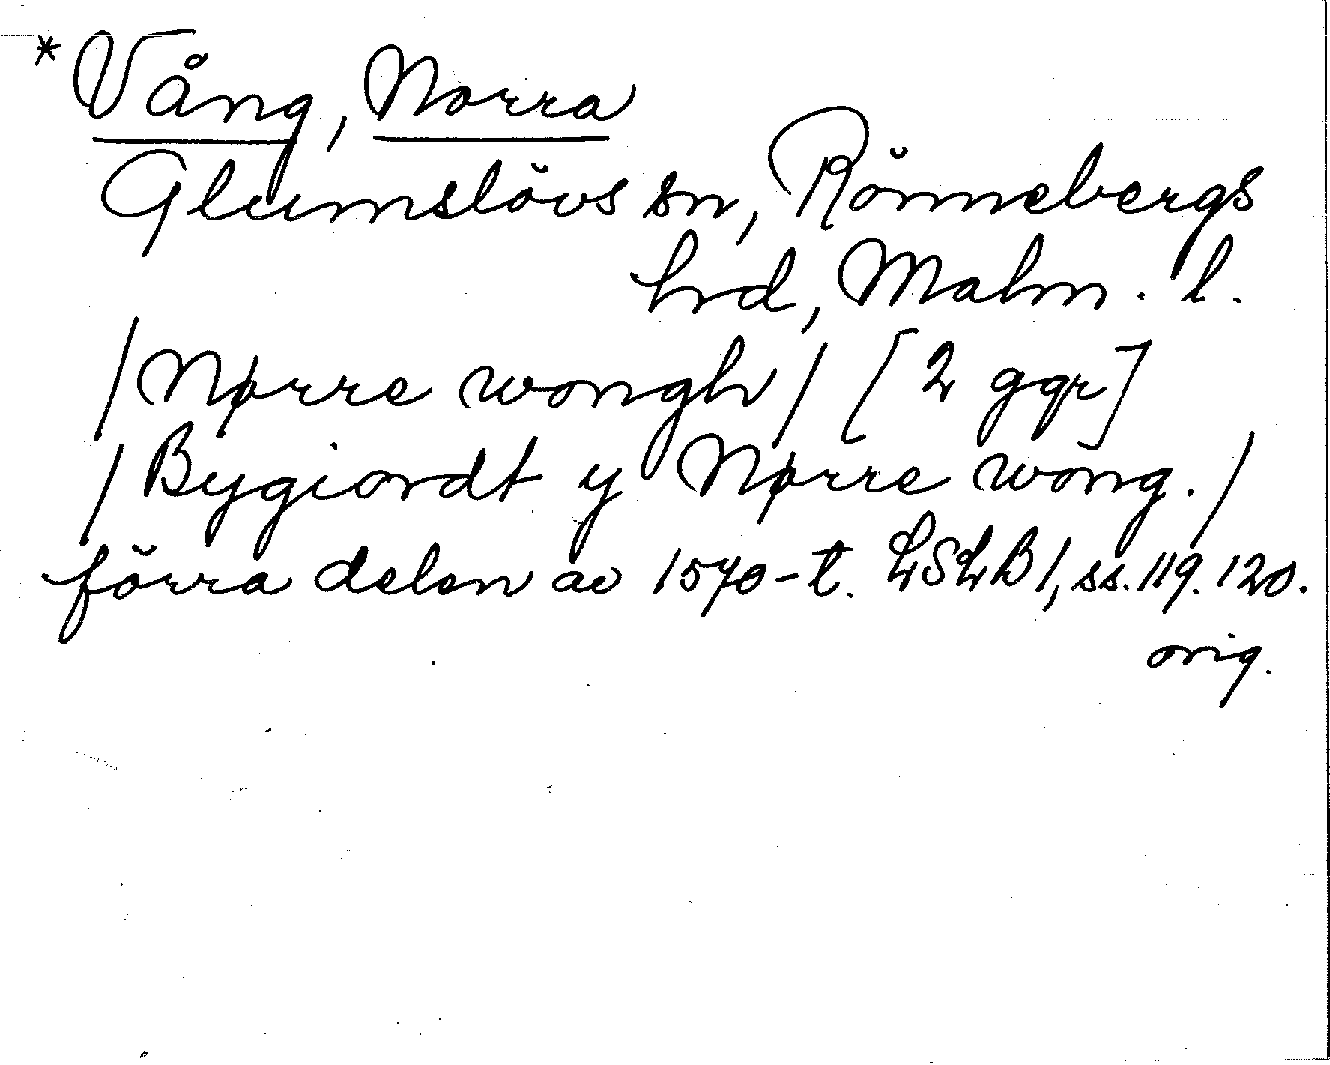 *Vång, Norra
Glumslövs sn, Rönnebergs
hrd, Malm. l.
/Nørre wongh/ [2 ggr]
/Bygiordt y Nørre wong./
förra delen av 1570-t. LSLB 1, ss. 119. 120.
orig.